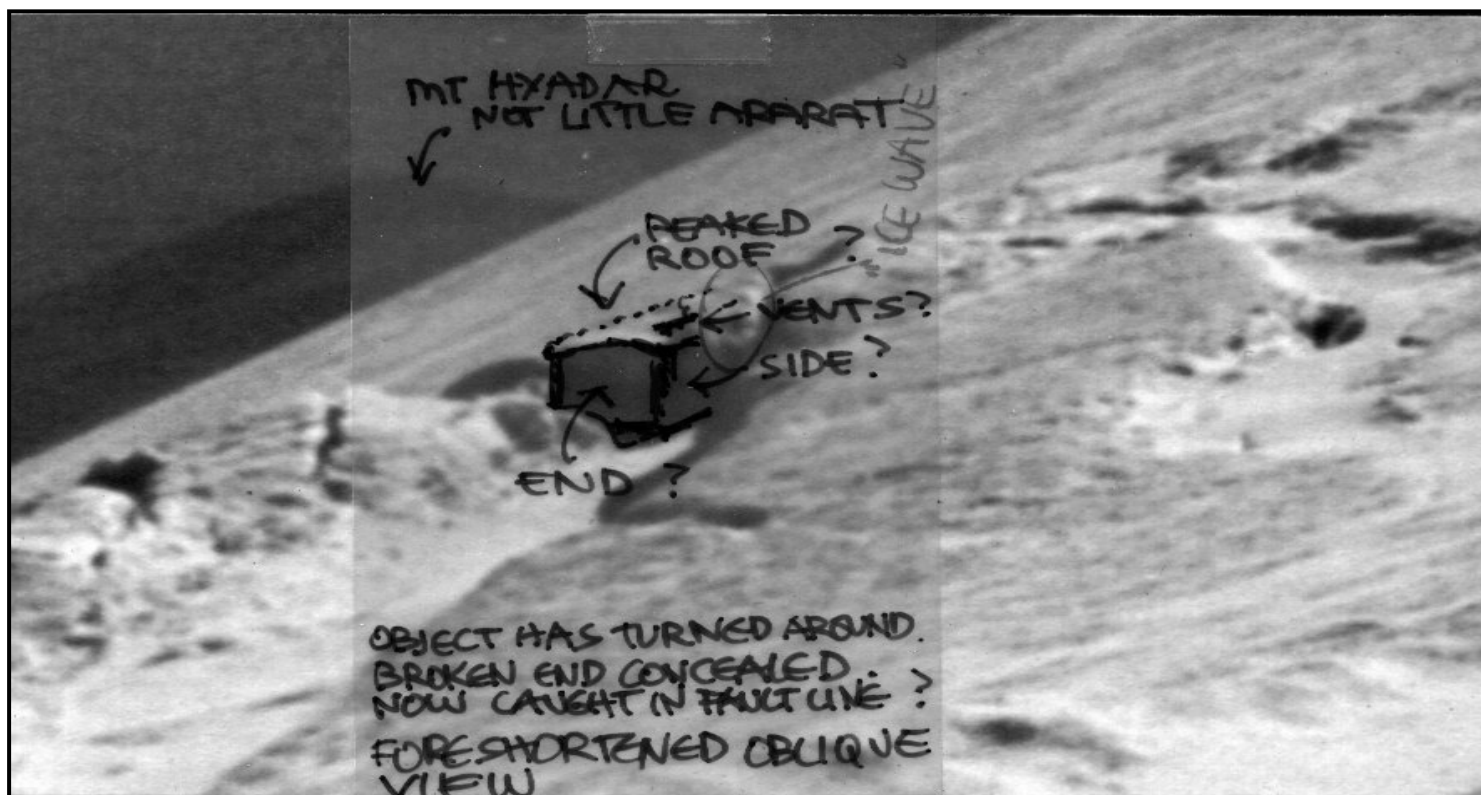 MT HXADAR
NOT LITTLE ARARAT
PEAKED
ROOF
?
ICE WAVE"
VENTS?
SIDE?
END ?
OBJECT HAS TURNED AROUND.
BROKEN END CONCEALED.
NOW CAUGHT IN FAULT LINE ?
FORESHORTENED OBLIQUE
VIEW